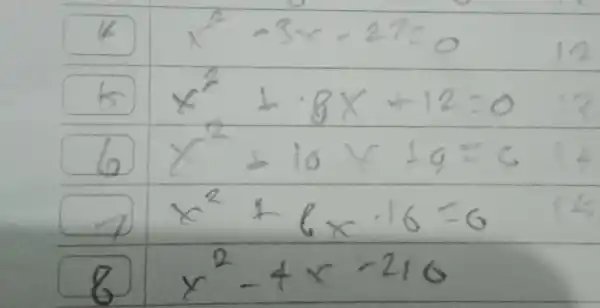 4 x² - 3x - 27 = 0 12
5 x² + 8x + 12 = 0
6 x² + 10x + 9 = 0
7 x² + 6x - 16 = 0
8 x² - 4x - 210